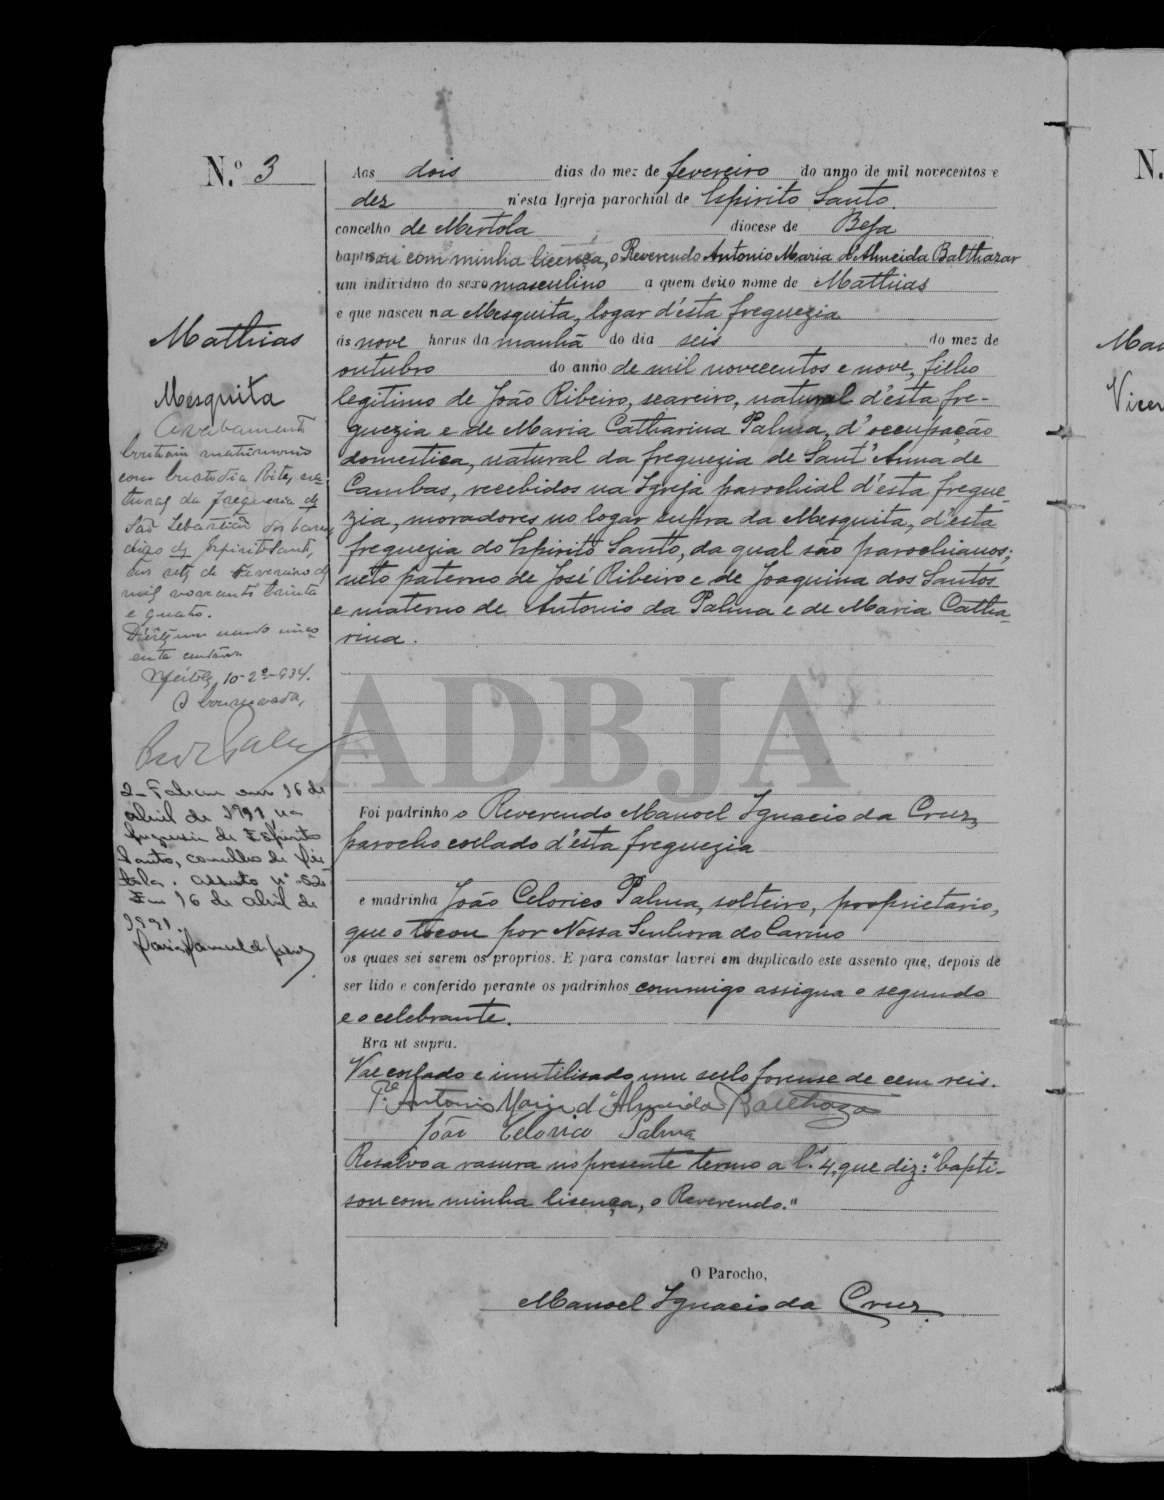 N.º 3
Mathias
Mesquita
Averbamento
Contraiu matrimonio
com Custodia Rita, na
tural da freguesia de
São Sebastião dos Carros
Espirito Santo,
de Fevereiro de
mil novecentos trinta
e quatro.
Mértola, 10-2º-934.
O Conservador,
2- Faleceu em 16 de
abril de 1991 na
freguesia de Espirito
Santo, concelho de Mér-
tola. Assento nº 52
Em 16 de abril de
1991.
Aos dois dias do mez de fevereiro do anno de mil novecentos e
dez n'esta Igreja parochial de Espirito Santo.
concelho de Mertola diocese de Beja
baptisou com minha licença, o Reverendo Antonio Maria d'Almeida Balthazar
um individuo do sexo masculino a quem deu o nome de Mathias
e que nasceu na Mesquita, logar d'ésta freguezia
ás nove horas da manhã do dia seis do mez de
outubro do anno de mil novecentos e nove, filho
legitimo de João Ribeiro, seareiro, natural d'ésta fre-
guezia e de Maria Catharina Palma, d'occupação
domestica, natural da freguezia de Sant'Anna de
Cambas, recebidos na Igreja parochial d'ésta fregue-
zia, moradores no logar supra da Mesquita, d'ésta
freguezia do Espirito Santo, da qual são parochianos;
neto paterno de José Ribeiro e de Joaquina dos Santos
e materno de Antonio da Palma e de Maria Catha-
rina.
ADBJA
Foi padrinho o Reverendo Manoel Ignacio da Cruz,
parocho collado d'ésta freguezia
e madrinha João Celorico Palma, solteiro, proprietario,
que o tocou por Nossa Senhora do Carmo
os quaes sei serem os proprios. E para constar lavrei em duplicado este assento que, depois de
ser lido e conferido perante os padrinhos commigo assigna o segundo
e o celebrante.
Era ut supra.
Vae collado e inutilisado um sello forense de cem reis.
P.e Antonio Maria d'Almeida Balthazar
João Celorico Palma
Resalvo a rasura no presente termo a l.ª 4, que diz: "bapti-
sou com minha licença, o Reverendo."
O Parocho,
Manoel Ignacio da Cruz.
N.
Vicen